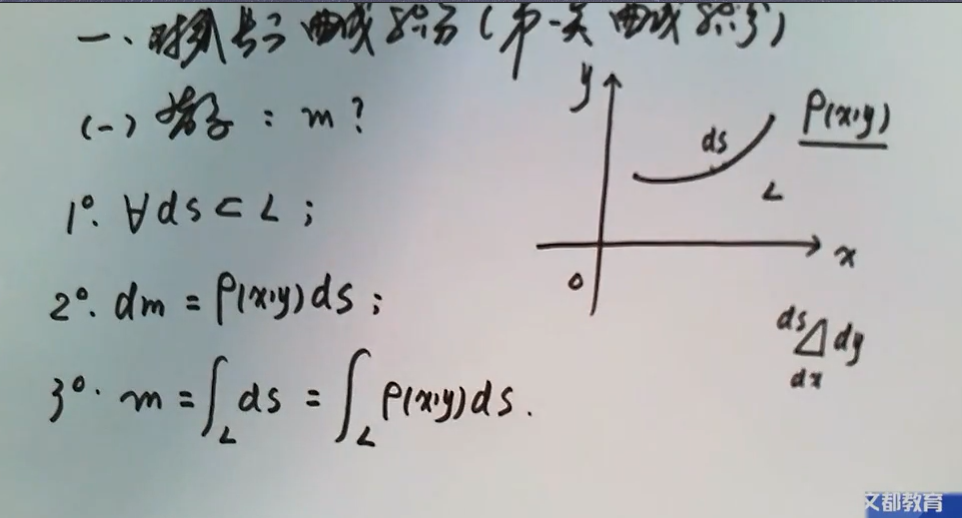 一、对弧长的曲线积分(第一类曲线积分)
(一) 背景: m?
1°. ∀ds⊂L;
2°. dm = ρ(x,y)ds;
3°. m = ∫_L ds = ∫_L ρ(x,y)ds.
y
ds
ρ(x,y)
L
x
0
ds
dy
dx
文都教育